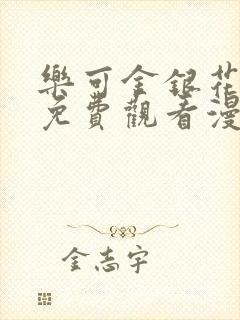 樂可金銀花
免費觀看漫
金志宇